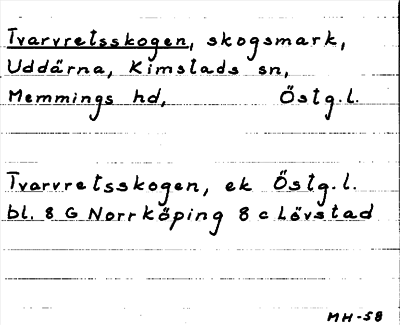 Tvarvretsskogen, skogsmark,
Uddärna, Kimstads sn,
Memmings hd, Östg.l.
Tvarvretsskogen, ek Östg.l.
bl. 8 G Norrköping 8 c Lövstad
MH-58